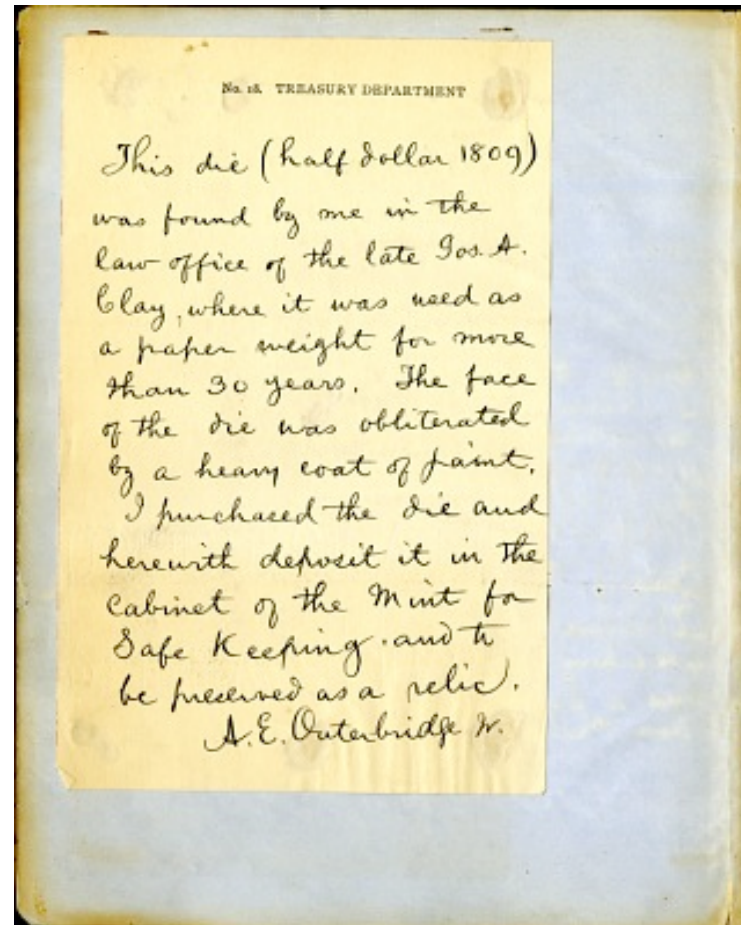 No. 18. TREASURY DEPARTMENT
This die (half dollar 1809)
was found by me in the
law office of the late Jos. A.
Clay, where it was used as
a paper weight for more
than 30 years. The face
of the die was obliterated
by a heavy coat of paint.
I purchased the die and
herewith deposit it in the
Cabinet of the Mint for
Safe Keeping. and to
be preserved as a relic.
A. E. Outerbridge Jr.